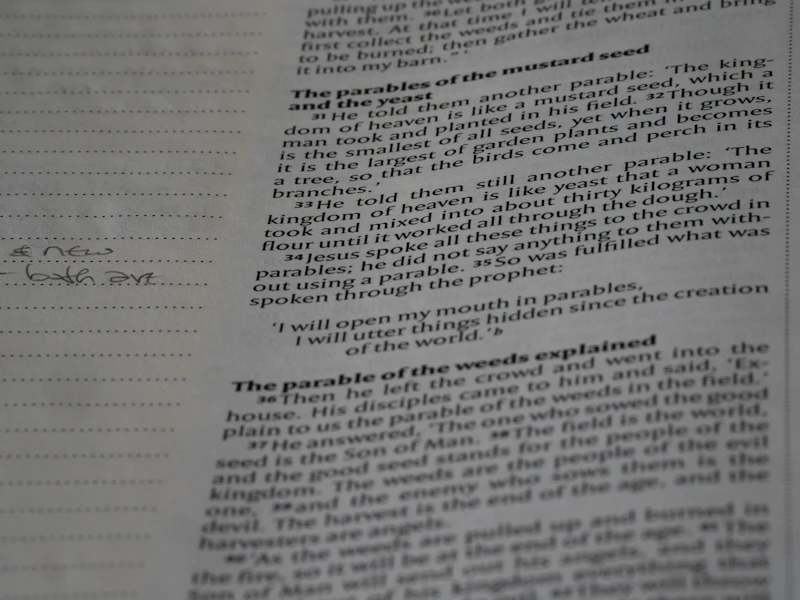 pulling up the we
with them. ³⁰Let both g
harvest. At that time I will
first collect the weeds and tie them
to be burned; then gather the wheat and bring
it into my barn.” ’
The parables of the mustard seed
and the yeast
³¹He told them another parable: ‘The king-
dom of heaven is like a mustard seed, which a
man took and planted in his field. ³²Though it
is the smallest of all seeds, yet when it grows,
it is the largest of garden plants and becomes
a tree, so that the birds come and perch in its
branches.’
³³He told them still another parable: ‘The
kingdom of heaven is like yeast that a woman
took and mixed into about thirty kilograms of
flour until it worked all through the dough.’
³⁴Jesus spoke all these things to the crowd in
parables; he did not say anything to them with-
out using a parable. ³⁵So was fulfilled what was
spoken through the prophet:
‘I will open my mouth in parables,
I will utter things hidden since the creation
of the world.’ᵇ
The parable of the weeds explained
³⁶Then he left the crowd and went into the
house. His disciples came to him and said, ‘Ex-
plain to us the parable of the weeds in the field.’
³⁷He answered, ‘The one who sowed the good
seed is the Son of Man. ³⁸The field is the world,
and the good seed stands for the people of the
kingdom. The weeds are the people of the evil
one, ³⁹and the enemy who sows them is the
devil. The harvest is the end of the age, and the
harvesters are angels.
⁴⁰‘As the weeds are pulled up and burned in
the fire, so it will be at the end of the age. ⁴¹The
Son of Man will send out his angels, and they
of his kingdom everything that
They will throw
& new
- both are